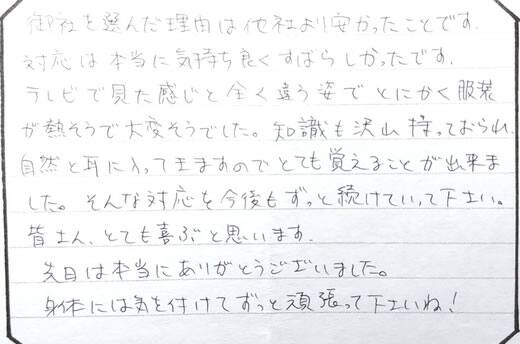 御社を選んだ理由は他社より安かったことです.
対応は本当に気持ち良くすばらしかったです.
テレビで見た感じと全く違う姿でとにかく服装
が熱そうで大変そうでした。知識も沢山持っておられ,
自然と耳に入ってきますのでとても覚えることが出来ま
した。そんな対応を今後もずっと続けていって下さい。
皆さん、とても喜ぶと思います.
先日は本当にありがとうございました。
身体には気を付けてずっと頑張って下さいね!